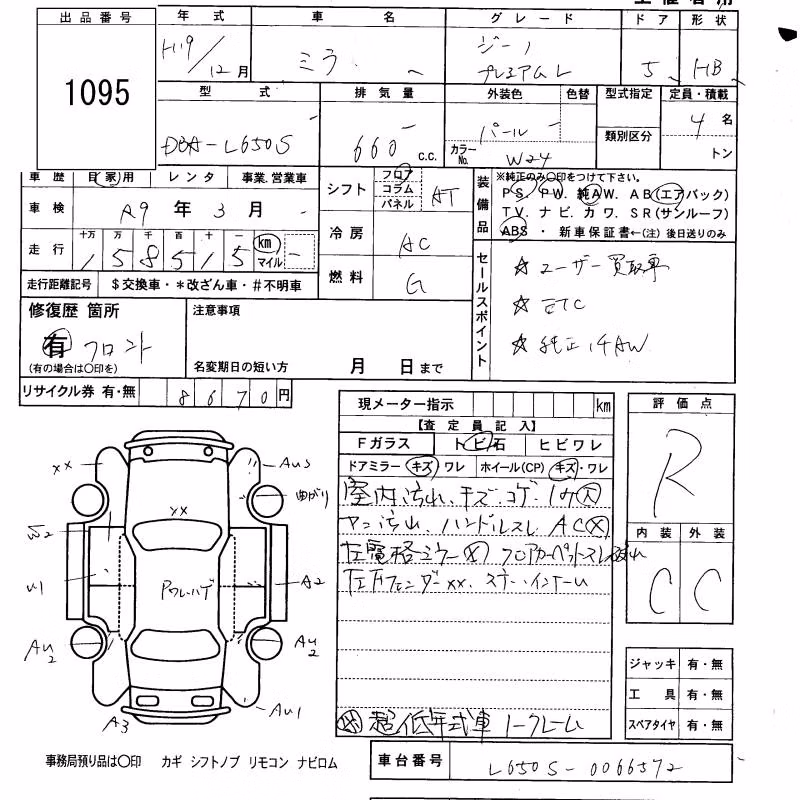 出品番号
1095
年式
H19/12月
車名
ミラ
グレード
ジーノ
プレミアムL
ドア
5
形状
HB
型式
DBA-L650S
排気量
660 c.c.
外装色
パール
色替
カラーNo.
W24
型式指定
類別区分
定員・積載
4名
トン
車歴
自家用
レンタ
事業.営業車
車検
R9年3月
走行
十万 万 千 百 十 一
158515
km
マイル
走行距離記号
$交換車・*改ざん車・#不明車
シフト
フロア
コラム
パネル
AT
冷房
AC
燃料
G
装備品
※純正のみ〇印をつけて下さい。
PS. PW. 純AW. AB(エアバック)
TV. ナビ. カワ. SR(サンルーフ)
ABS・新車保証書←(注)後日送りのみ
セールスポイント
☆ ユーザー買取車
☆ ETC
☆ 純正14AW
修復歴 箇所
有 フロント
(有の場合は〇印を)
注意事項
名変期日の短い方 月 日まで
リサイクル券 有・無
8670円
現メーター指示
km
【査定員記入】
Fガラス
トビ石
ヒビワレ
ドアミラー キズ ワレ
ホイール(CP) キズ・ワレ
室内汚れ、キズ、コゲ、
ヤニ汚れ、ハンドルスレ AC
左電格ミラー フロアカーペットスレ破れ
超低年式車 ノークレーム
評価点
R
内装
外装
C
C
ジャッキ 有・無
工具 有・無
スペアタイヤ 有・無
車台番号
L650S-0066572
xx
xx
W2
U1
AU2
A3
AU3
曲がり
A2
AU2
AU1
ワレ・ハゲ
事務局預り品は〇印 カギ シフトノブ リモコン ナビロム